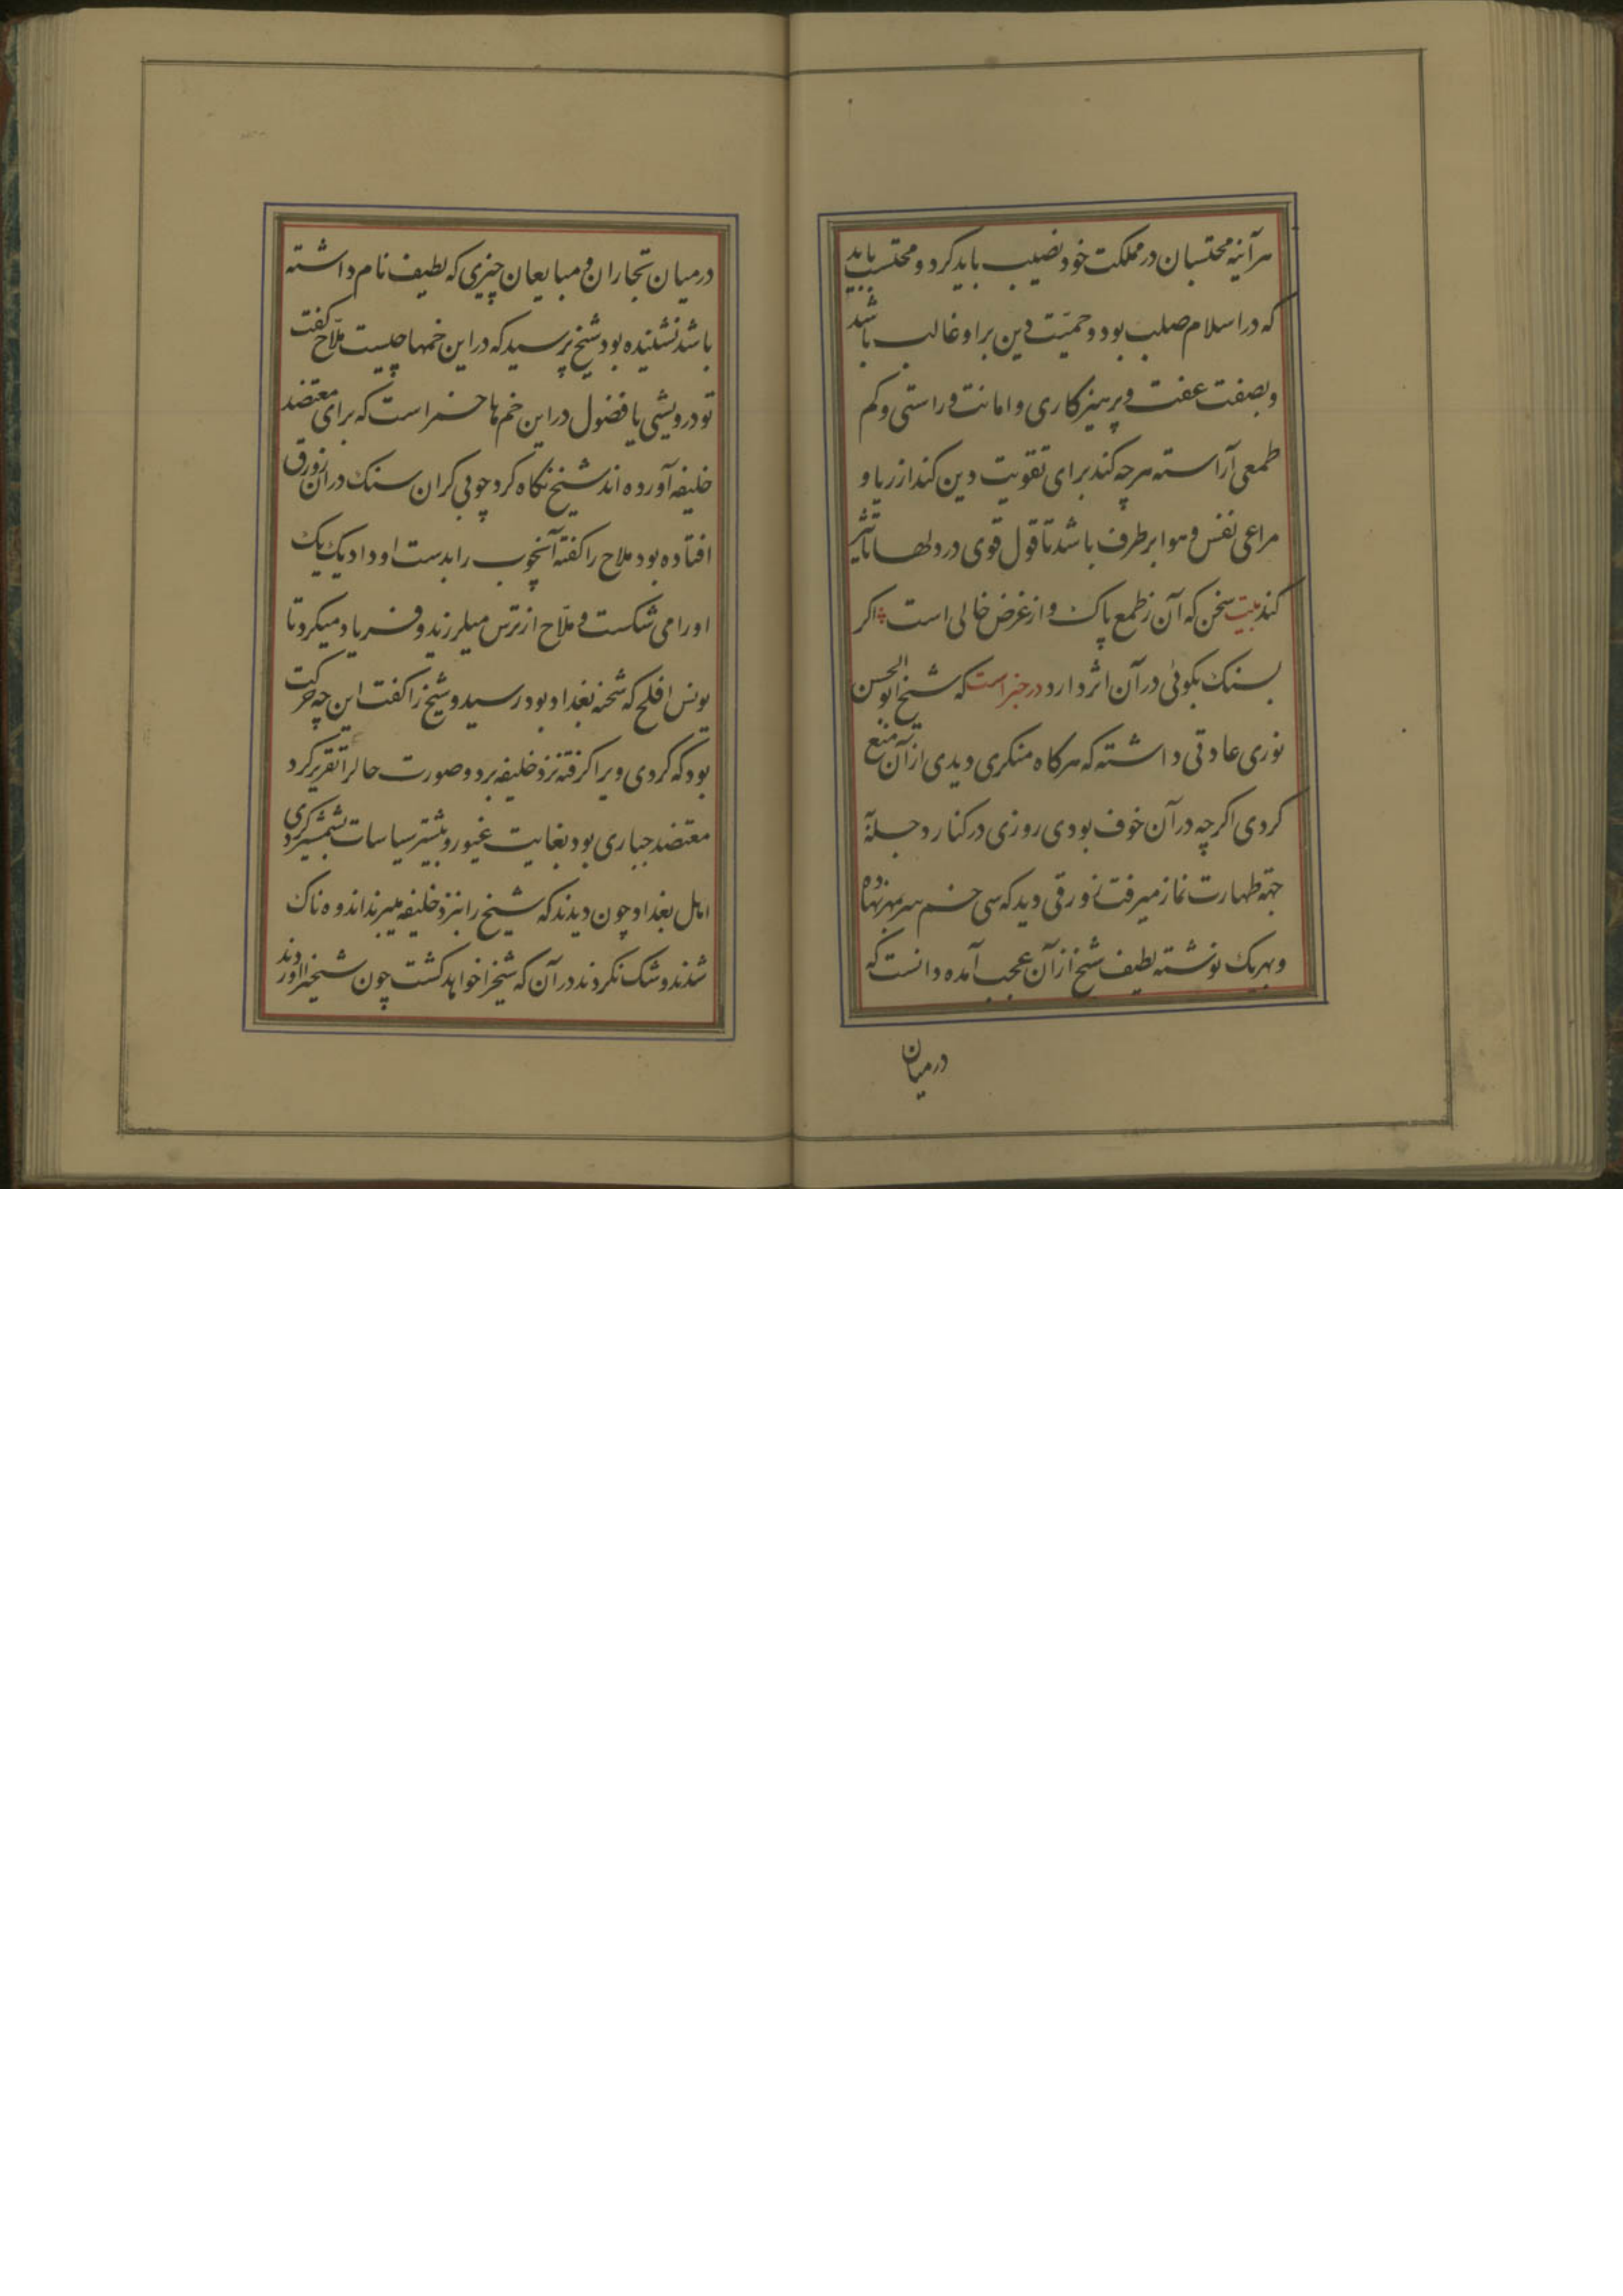 هرآینه محتسبان در مملکت خود نصیب باید کرد و محتسب باید
که در اسلام صلب بود و حمیّت دین بر او غالب باشد
و بصفت عفت و پرهیزکاری و امانت و راستی و کم
طمعی آراسته هرچه کند برای تقویت دین کند از ریا و
مراعی نفس و هوا برطرف باشد تا قول قوی در دلها تاثیر
کند بیت سخن که آن ز طمع پاک و از غرض خالی است اکر
بسنک بکوئی در آن اثر دارد در خبر است که شیخ ابوالحسن
نوری عادتی داشته که هرکاه منکری دیدی از آن منع
کردی اکرچه در آن خوف بودی روزی در کنار دجله
جهة طهارت نماز میرفت زورقی دید که سی خم سر بمهر نهاده
و بهریک نوشته لطیف شیخ از آن عجب آمده دانست که
درمیان
درمیان تجاران و مبایعان چیزی که لطیف نام داشته
باشد نشنیده بود شیخ پرسید که در این خمها چیست ملّاح کفت
تو درویشی یا فضول در این خم ها خمر است که برای معتضد
خلیفه آورده اند شیخ نکاه کرد چوبی کران سنک در آن زورق
افتاده بود ملاح را کفته آنچوب را بدست او داد یک یک
او را می شکست و ملّاح از ترس میلرزید و فریاد میکرد تا
یونس افلح که شحنه بغداد بود رسید و شیخ را کفت این چه حرکت
بود که کردی ویرا کرفته نزد خلیفه برد و صورت حالرا تقریر کرد
معتضد جباری بود بغایت غیور و بیشتر سیاسات بشمشیر کردی
اهل بغداد چون دیدند که شیخ را بنزد خلیفه میبرند اندوه ناک
شدند و شک نکردند در آن که شیخرا خواهد کشت چون شیخرا آوردند